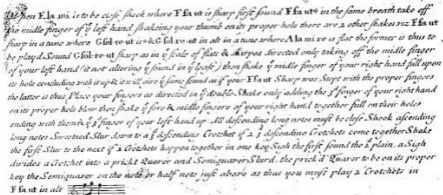 When Ela mi is to be close shook where Ffa ut is sharp first sound Ffa ut in the same breath take off
the middle finger of y left hand shakeing your thumb on its proper hole there are 2 other shakes viz Ffa ut
sharp in a tune where Gsol re ut is & Gsol re ut in alt in a tune where Ala mi re is flat the former is thus to
be play'd Sound Gsol re ut sharp as in y scale of flats & sharps directed only taking off the midle finger
of your left hand it not altering y sound in y least then shake y midle finger of your right hand full upon
its hole concluding with it up it is still air y same sound as if your Ffa ut Sharp was Stopt with the proper fingers
the latter is thus, Place your fingers as directed in y double Shake only adding the 3 finger of your right hand
on its proper hole blow then shake y fore & midle fingers of your right hand together full on their holes
ending with them & y 3 finger of your left hand up. All descending long notes must be close Shook ascending
long notes Sweetned Slur down to a y descending Crotchet if 2 descending Crotchets come together Shake
the first Slur to the next if 2 Crotchets happen together in one key Sigh the first sound the 2 plain. a Sigh
divides a Crotchet into a prickt Quaver and Semiquaver Slurd. the prick'd Quaver to be on its proper
key the Semiquaver on the note or half note just above as thus you must play 2 Crotchets in
Ffa ut in alt